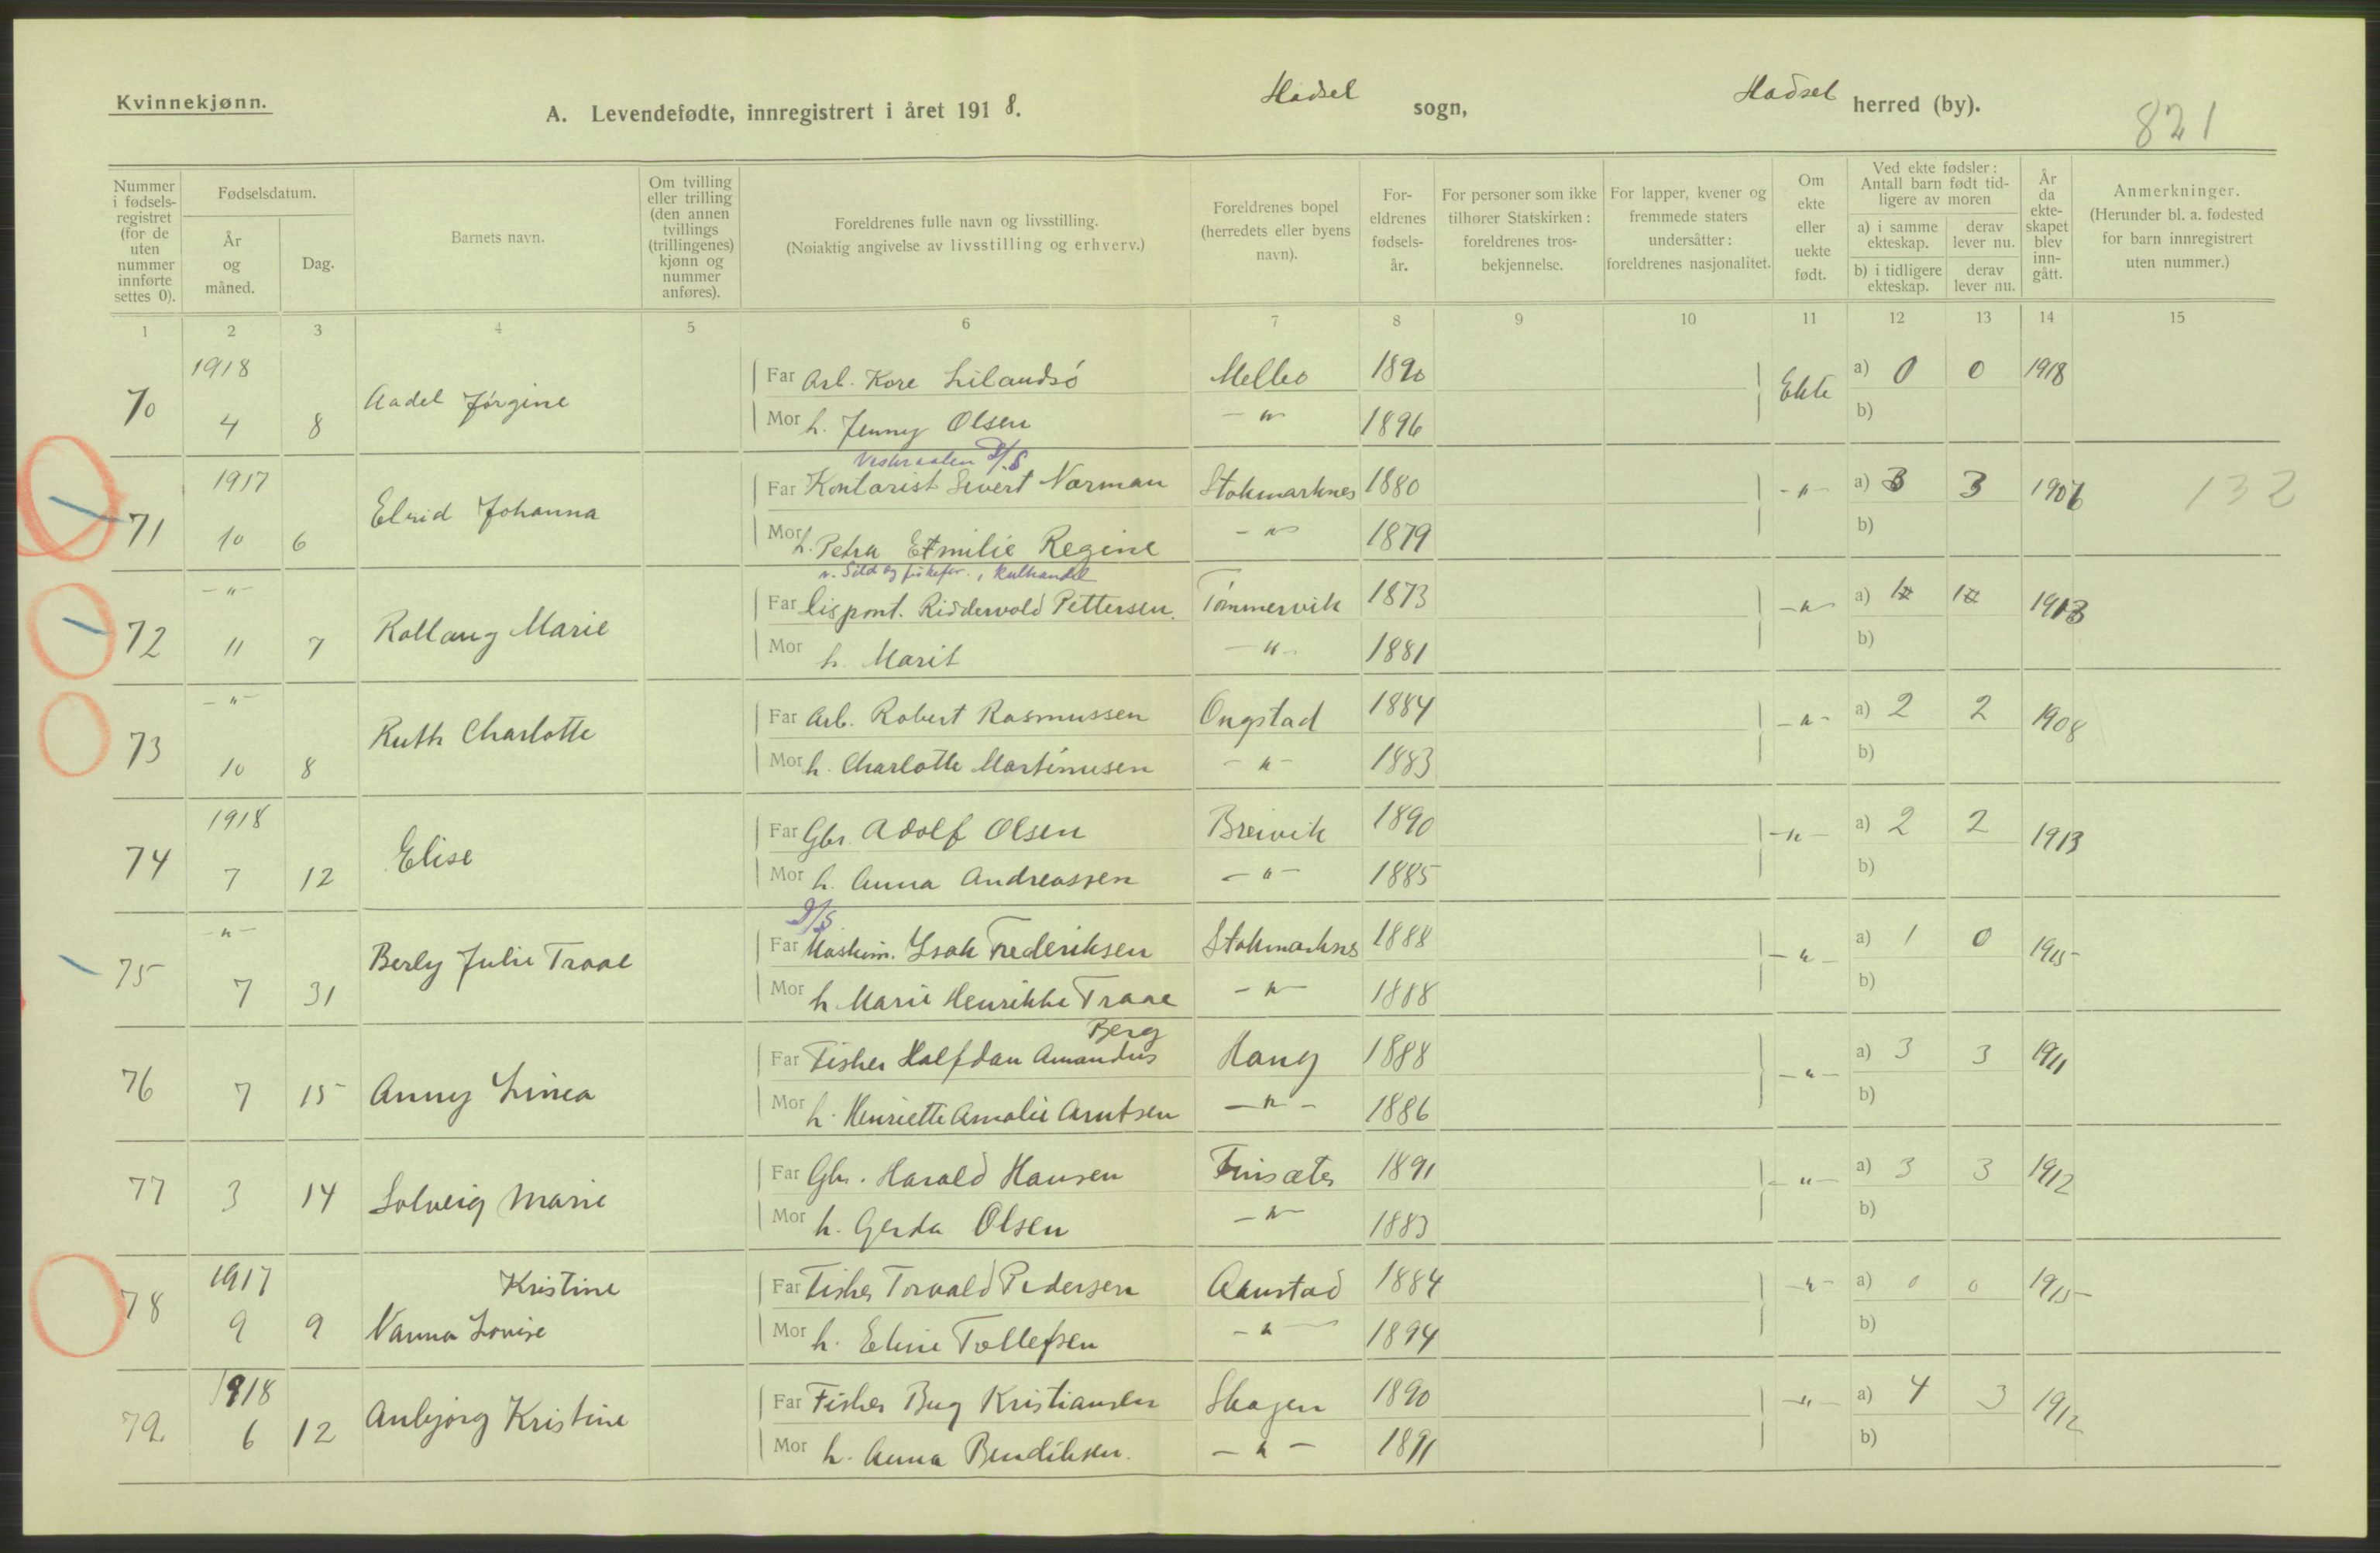 Kvinnekjønn.
A. Levendefødte, innregistrert i året 1918.
Hadsel sogn,
Hadsel herred (by).
821
Nummer i fødselsregistret (for de uten nummer innførte settes 0).
Fødselsdatum.
År og måned.
Dag.
Barnets navn.
Om tvilling eller trilling (den annen tvillings (trillingenes) kjønn og nummer anføres).
Foreldrenes fulle navn og livsstilling.
(Nøiaktig angivelse av livsstilling og erhverv.)
Foreldrenes bopel (herredets eller byens navn).
Foreldrenes fødselsår.
For personer som ikke tilhører Statskirken: foreldrenes trosbekjennelse.
For lapper, kvener og fremmede staters undersåtter: foreldrenes nasjonalitet.
Om ekte eller uekte født.
Ved ekte fødsler: Antall barn født tidligere av moren
a) i samme ekteskap.
derav lever nu.
b) i tidligere ekteskap.
derav lever nu.
År da ekteskapet blev inngått.
Anmerkninger.
(Herunder bl. a. fødested for barn innregistrert uten nummer.)
1 2 3 4 5 6 7 8 9 10 11 12 13 14 15
1918
70 4 8 Aadel Jørgine
Far Arb. Kore Lilandsö Melbo 1890 Ekte a) 0 0 1918
Mor h. Jenny Olsen -"- 1896 b)
1917
71 10 6 Elrid Johanna
Vesteraalen D/S
Far Kontorist Sivert Norman Stokmarknes 1880 -"- a) 3 3 1906 132
Mor h. Petra Emilie Regine -"- 1879 b)
-"-
72 11 7 Rollaug Marie
v. Sild og fiskefor., kulhandel
Far Eispont. Riddervold Pettersen. Tömmervik 1873 -"- a) 1 1 1913
Mor h. Marit -"- 1881 b)
-"-
73 10 8 Ruth Charlotte
Far Arb. Robert Rasmussen Ongstad 1884 -"- a) 2 2 1908
Mor h. Charlotte Martinusen -"- 1883 b)
1918
74 7 12 Elise
Far Gbr. Adolf Olsen Breivik 1890 -"- a) 2 2 1913
Mor h. Anna Andreassen -"- 1885 b)
-"-
75 7 31 Berly Julie Traae
D/S
Far Maskin. Isak Frederiksen Stokmarknes 1888 -"- a) 1 0 1915
Mor h Marie Henrikke Traae -"- 1888 b)
76 7 15 Anny Linea
Berg
Far Fisker Halfdan Amandus Haug 1888 -"- a) 3 3 1911
Mor h. Henriette Amalie Arntsen -"- 1886 b)
77 3 14 Solveig Marie
Far Gbr. Harald Hansen Finsæter 1891 -"- a) 3 3 1912
Mor h. Gerda Olsen -"- 1883 b)
1917
78 9 9 Kristine
Nanna Lovise
Far Fisker Torvald Pedersen Aanstad 1884 -"- a) 0 0 1915
Mor h. Eline Tollefsen -"- 1894 b)
1918
79. 6 12 Anbjørg Kristine
Far Fisker Kristiansen Skagen 1890 -"- a) 4 3 1912
Mor h. Anna Bendiksen. -"- 1891 b)